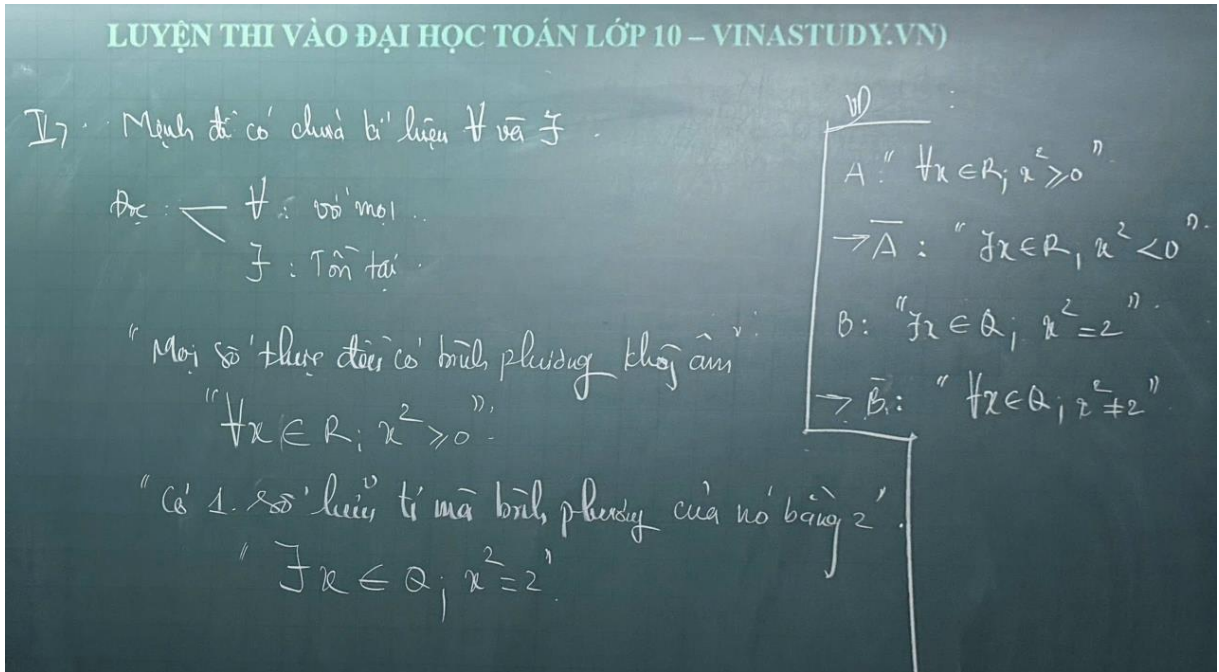 LUYỆN THI VÀO ĐẠI HỌC TOÁN LỚP 10 – VINASTUDY.VN)
V, Mệnh đề có chứa kí hiệu ∀ và ∃.
Đọc: ∀: với mọi..
∃: Tồn tại.
"Mọi số thực đều có bình phương không âm".
"∀x ∈ R; x² ≥ 0".
"Có 1 số hữu tỉ mà bình phương của nó bằng 2".
"∃x ∈ Q; x² = 2".
VD:
A: "∀x ∈ R; x² ≥ 0".
→ A̅: "∃x ∈ R, x² < 0".
B: "∃x ∈ Q; x² = 2".
→ B̅: "∀x ∈ Q; x² ≠ 2".